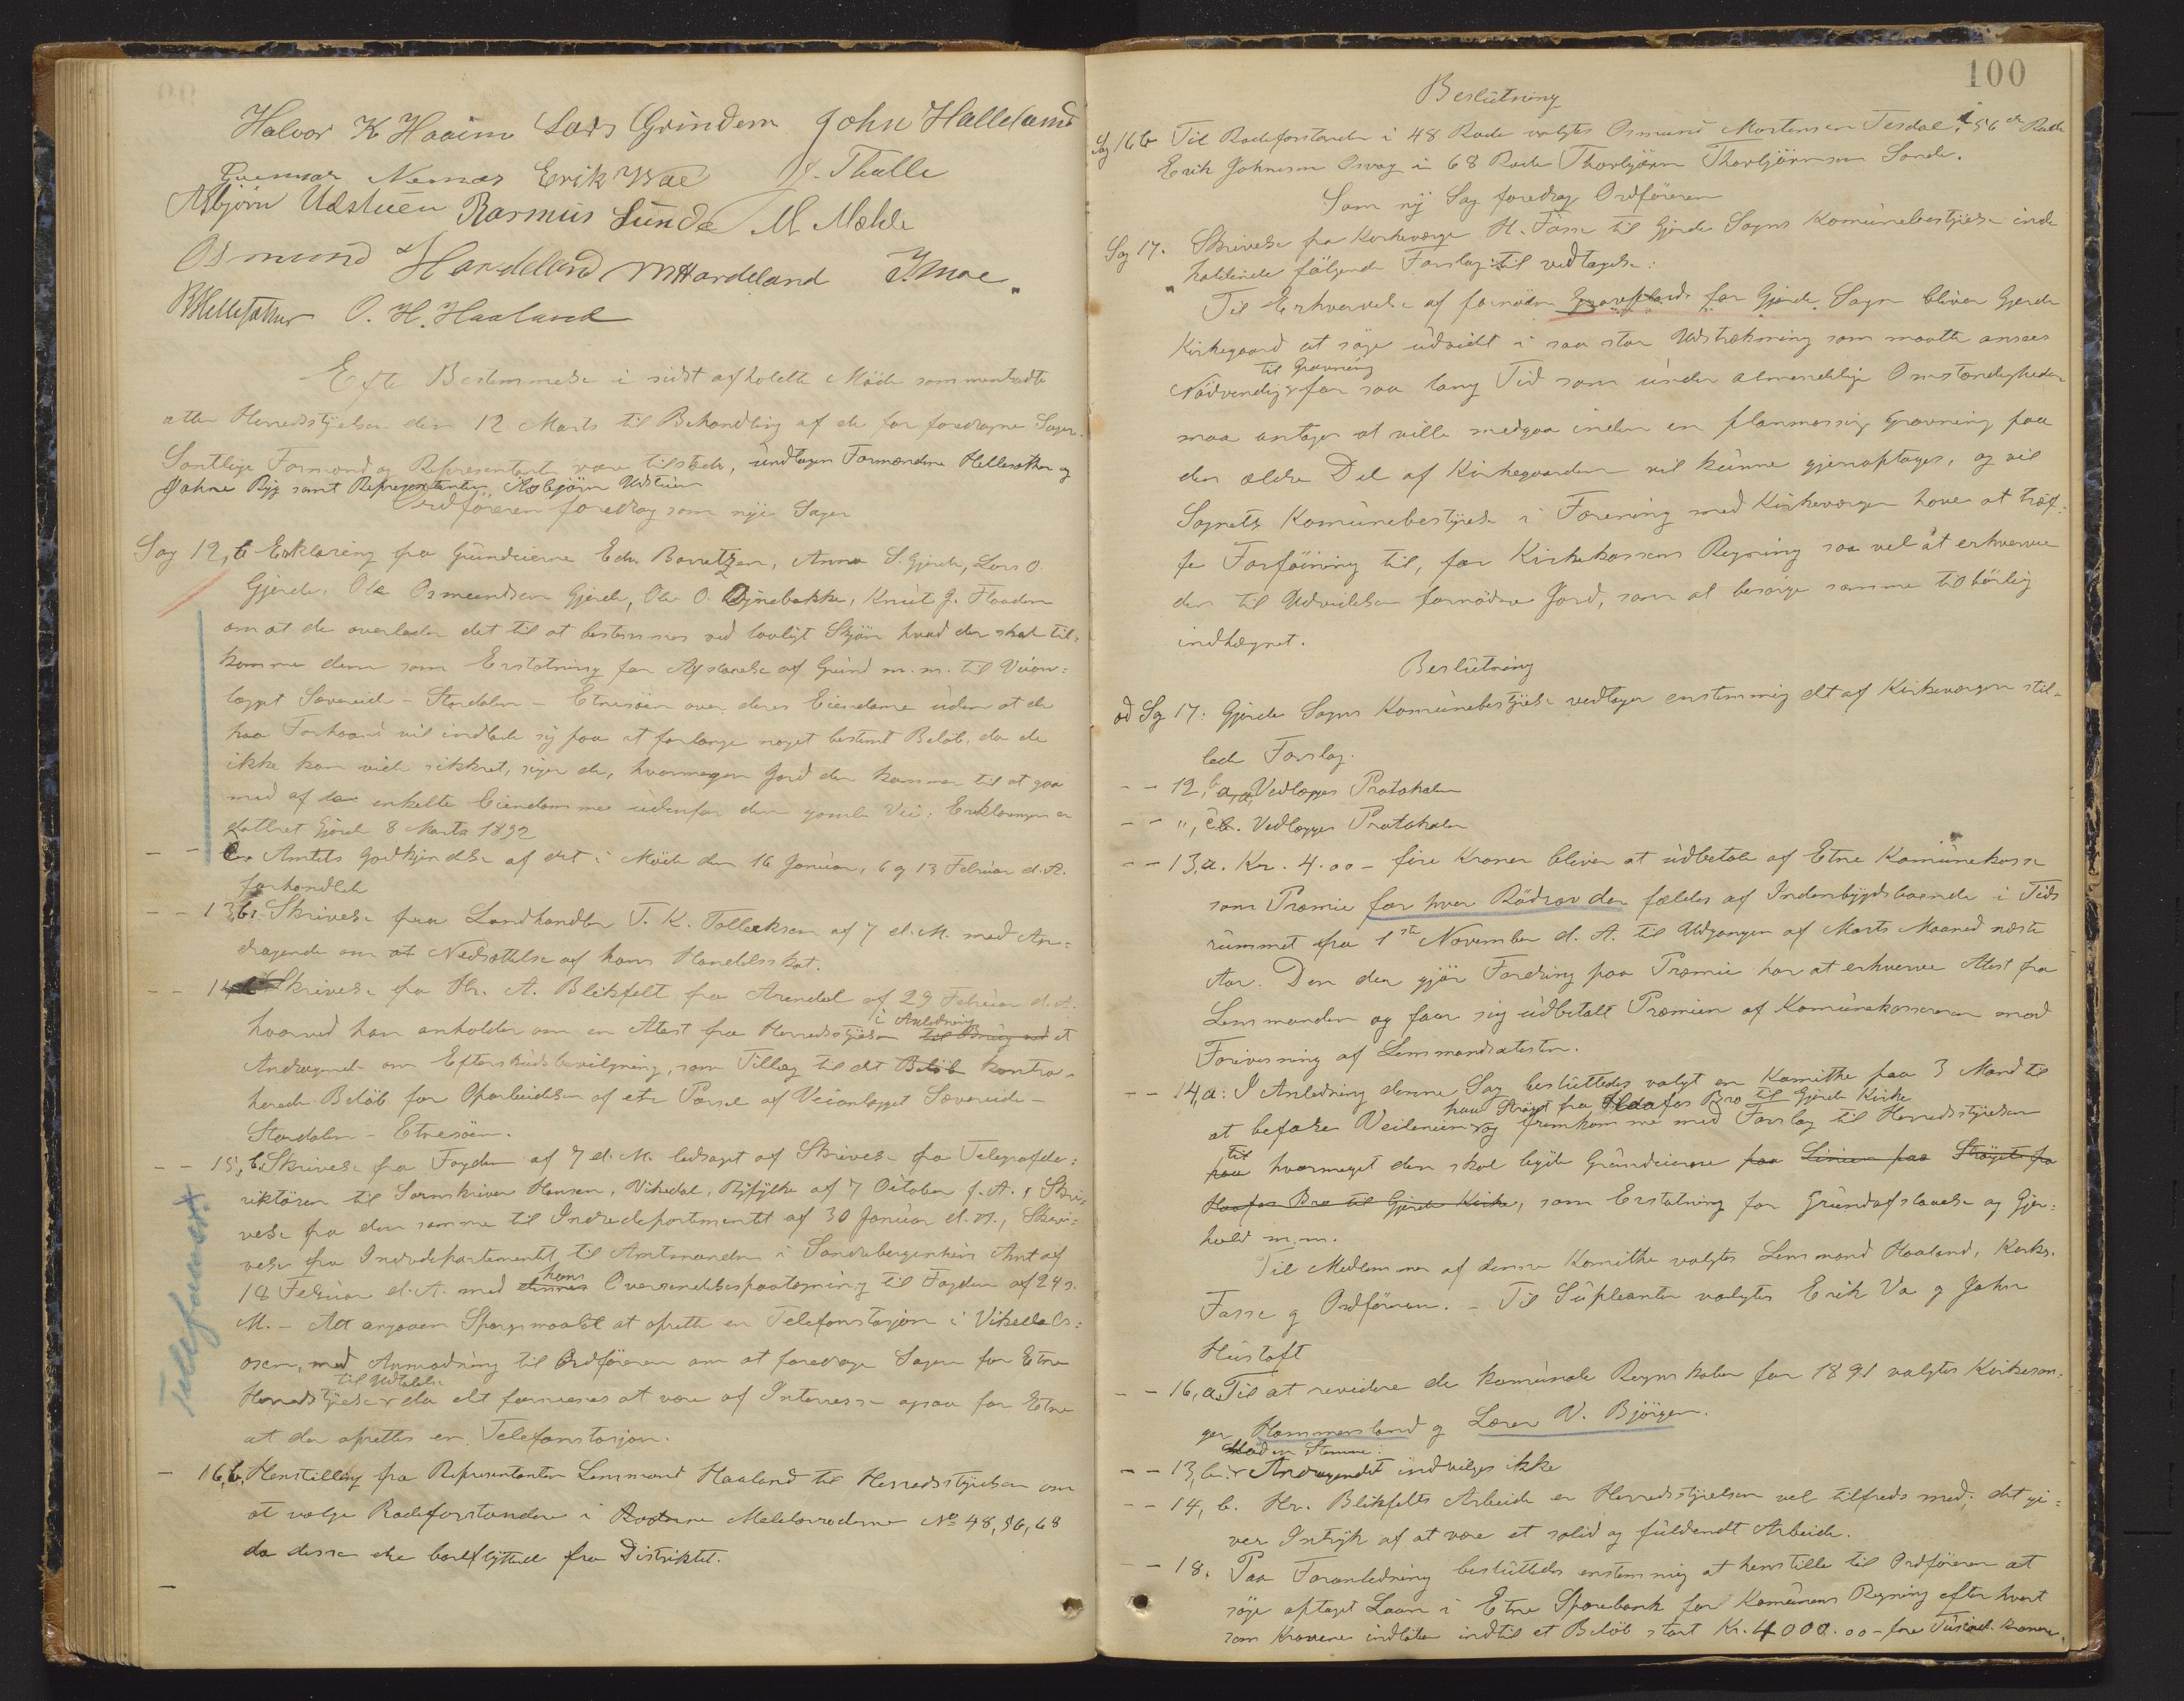 Halvor K Haaim Lars Grindem John Halleland
Gunnar Nernæs Erik Vae J. Thulle
Asbjørn Udstuen Rasmus Lunde M Mæhle
Osmund Handeland MHardeland J. Moe.
O. H. Haaland
Efter Bestemmelse i sidst afholdte Møde sammentraadte
atter Herredsstyrelsen den 12 Marts til Behandling af de før foredragne Sager.
Samtlige Formænd og Repræsentanter vare tilstede, undtagen Formændene Hellesøther og
Johne Ryg samt Repræsentanten Asbjørn Udstuen
Ordføreren foredrog som nye Sager
Sag 12, b Erklæring fra Grundeierne Edv. Barretzen, Anna S. Gjerde, Lars O.
Gjerde, Ole Osmundsen Gjerde, Ole O. Dynebakke, Knut J. Flaaden
om at de overlader det til at bestemmes ved lovligt Skjøn hvad der skal til-
komme dem som Erstatning for Afstaaelse af Grund m. m. til Veian-
lægget Sævereide - Stordalen - Etnesøen over deres Eiendome uden at de
paa Forhaand vil indlade sig paa at forlange noget bestemt Beløb, da de
ikke kan vide sikkert, siger de, hvormegen Jord der kommer til at gaa
med af de enkelte Eiendomme udenfor den gamle Vei: Erklæringen er
dateret Gjerde 8 Marts 1892
- - c. Amtets Godkjendelse af det i Møde den 16 Januar, 6 og 13 Februar d. A.
forhandlede
- - 13, b. Skrivelse fra Landhandler T. K. Tolleksen af 7 d. M. med An-
dragende om at Nedsættelse af hans Handelsskat.
- - 14, b Skrivelse fra Hr. A. Blikfelt fra Arendal af 29 Februar d. A.
i Anledning
hvorved han anholder om en Atest fra Herredsstyrelsen til Brug ved et
Andragende om Efterskudsbevilgning, som Tillæg til det Beløb kontra-
herede Beløb for Oparbeidelsen af et Parsel af Veianlægget Sævereide -
Stordalen - Etnesøen.
- - 15, b. Skrivelse fra Fogden af 7 d. M. ledsaget af Skrivelse fra Telegrafdi-
rektøren til Sorenskriver Hansen, Vikedal, Ryfylke af 7 October f. A., Skri-
velse fra den samme til Indredepartementet af 30 Januar d. A., Skri-
velse fra Indredepartementet til Amtmanden i Søndrebergenhus Amt af
hans
18 Februar d. A. med dennes Oversendelsespaategning til Fogden af 24 s.
M. - Alt angaaen Spørgsmaalet at oprette en Telefonstasjon i Vikedals-
osen, med Anmodning til Ordføreren om at foredrage Sagen for Etne
til Udtalelse
Herredsstyrelse da det formenes at være af Interresse ogsaa for Etne
at der oprettes en Telefonstasjon.
Telefonanst.
- 16, b. Henstilling fra Representanten Lensmand Haaland til Herredsstyrelsen om
at vælge Rodeforstandere i Roderne Matelsroderne No 48, 56, 68
da disse ere bortflyttede fra Distriktet.
100
Beslutning
Sag 16 b Til Rodeforstander i 48 Rode valgtes Osmund Mortensen Tesdal, i 56de Rode
Erik Johnson Osvag i 68 Rode Thorbjørn Thorbjørnsen Sande.
Som ny Sag foredrog Ordføreren
Sag 17. Skrivelse fra Kirkeværge H. Fasse til Gjerde Sogns Komunebestyrelse inde
holdende følgende Forslag til vedtagelse:
Til Erhvervelse af fornøden Gravplads for Gjerde Sogn bliver Gjerde
Kirkegaard at søge udvidet i saa stor Udstrækning som maatte ansees
til Gravning
Nødvendig for saa lang Tid som under almindelige Omstændigheder
maa antages at ville medgaa inden en planmæssig Gravning paa
den ældre Del af Kirkegaarden vil kunne gjenoptages, og vil
Sognets Komunebestyrelse i Forening med Kirkeværgen have at træf-
fe Forføining til, for Kirkekassens Regning saa vel at erhverve
den til Udvidelsen fornødne Jord, som at besørge samme tilbørlig
indhegnet.
Beslutning
ad Sag 17: Gjerde Sogns Komunebestyrelse vedtager enstemmig det af Kirkeværgen stil-
lede Forslag.
- - 12, b Vedlægges Protokolen
- - ", c. Vedlægges Protokolen
- - 13, a. Kr. 4.00 - fire Kroner bliver at udbetale af Etne Komunekasse
som Præmie for hver Rødræv der fældes af Indenbygdsboende i Tids
rummet fra 1ste November d. A. til Udgangen af Marts Maaned næste
Aar. Den der gjør Fordring paa Præmie har at erhverve Atest fra
Lensmanden og faar sig udbetalt Præmien af Komunekassereren mod
Forevisning af Lensmandsatesten.
- - 14, a: I Anledning denne Sag besluttedes valgt en Komithe paa 3 Mand til
paa Strøget fra Haafos Bro til Gjerde Kirke
at befare Veilinien og fremkomme med Forslag til Herredsstyrelsen
til
paa hvormeget den skal byde Grundeierne paa Linien paa Strøget fra
Haafos Bro til Gjerde Kirke, som Erstatning for Grundafstaaelse og Gjer-
hold m. m.
Til Medlemmer af denne Komithe valgtes Lensmand Haaland, Kirkv.
Fasse og Ordføreren. - Til Supleanter valgtes Erik Va og John
Hustoft
- - 16, a. Til at revidere de komunale Regnskaber for 1891 valgtes Kirkesan-
ger Hammersland og Lærer V. Bjørgen.
Mod en Stemme:
- - 13, b. Andragendet indvilges ikke
- - 14, b. Hr. Blikfelts Arbeide er Herredsstyrelsen vel tilfreds med, det gi-
ver Intryk af at være et solid og fuldendt Arbeide.
- - 18. Paa Foranledning besluttedes enstemmig at henstille til Ordføreren at
søge optaget Laan i Etne Sparebank for Komunens Regning efter hvert
som Kravene indløber indtil et Beløb stort Kr. 4000.00 - fire Tusinde Kroner.